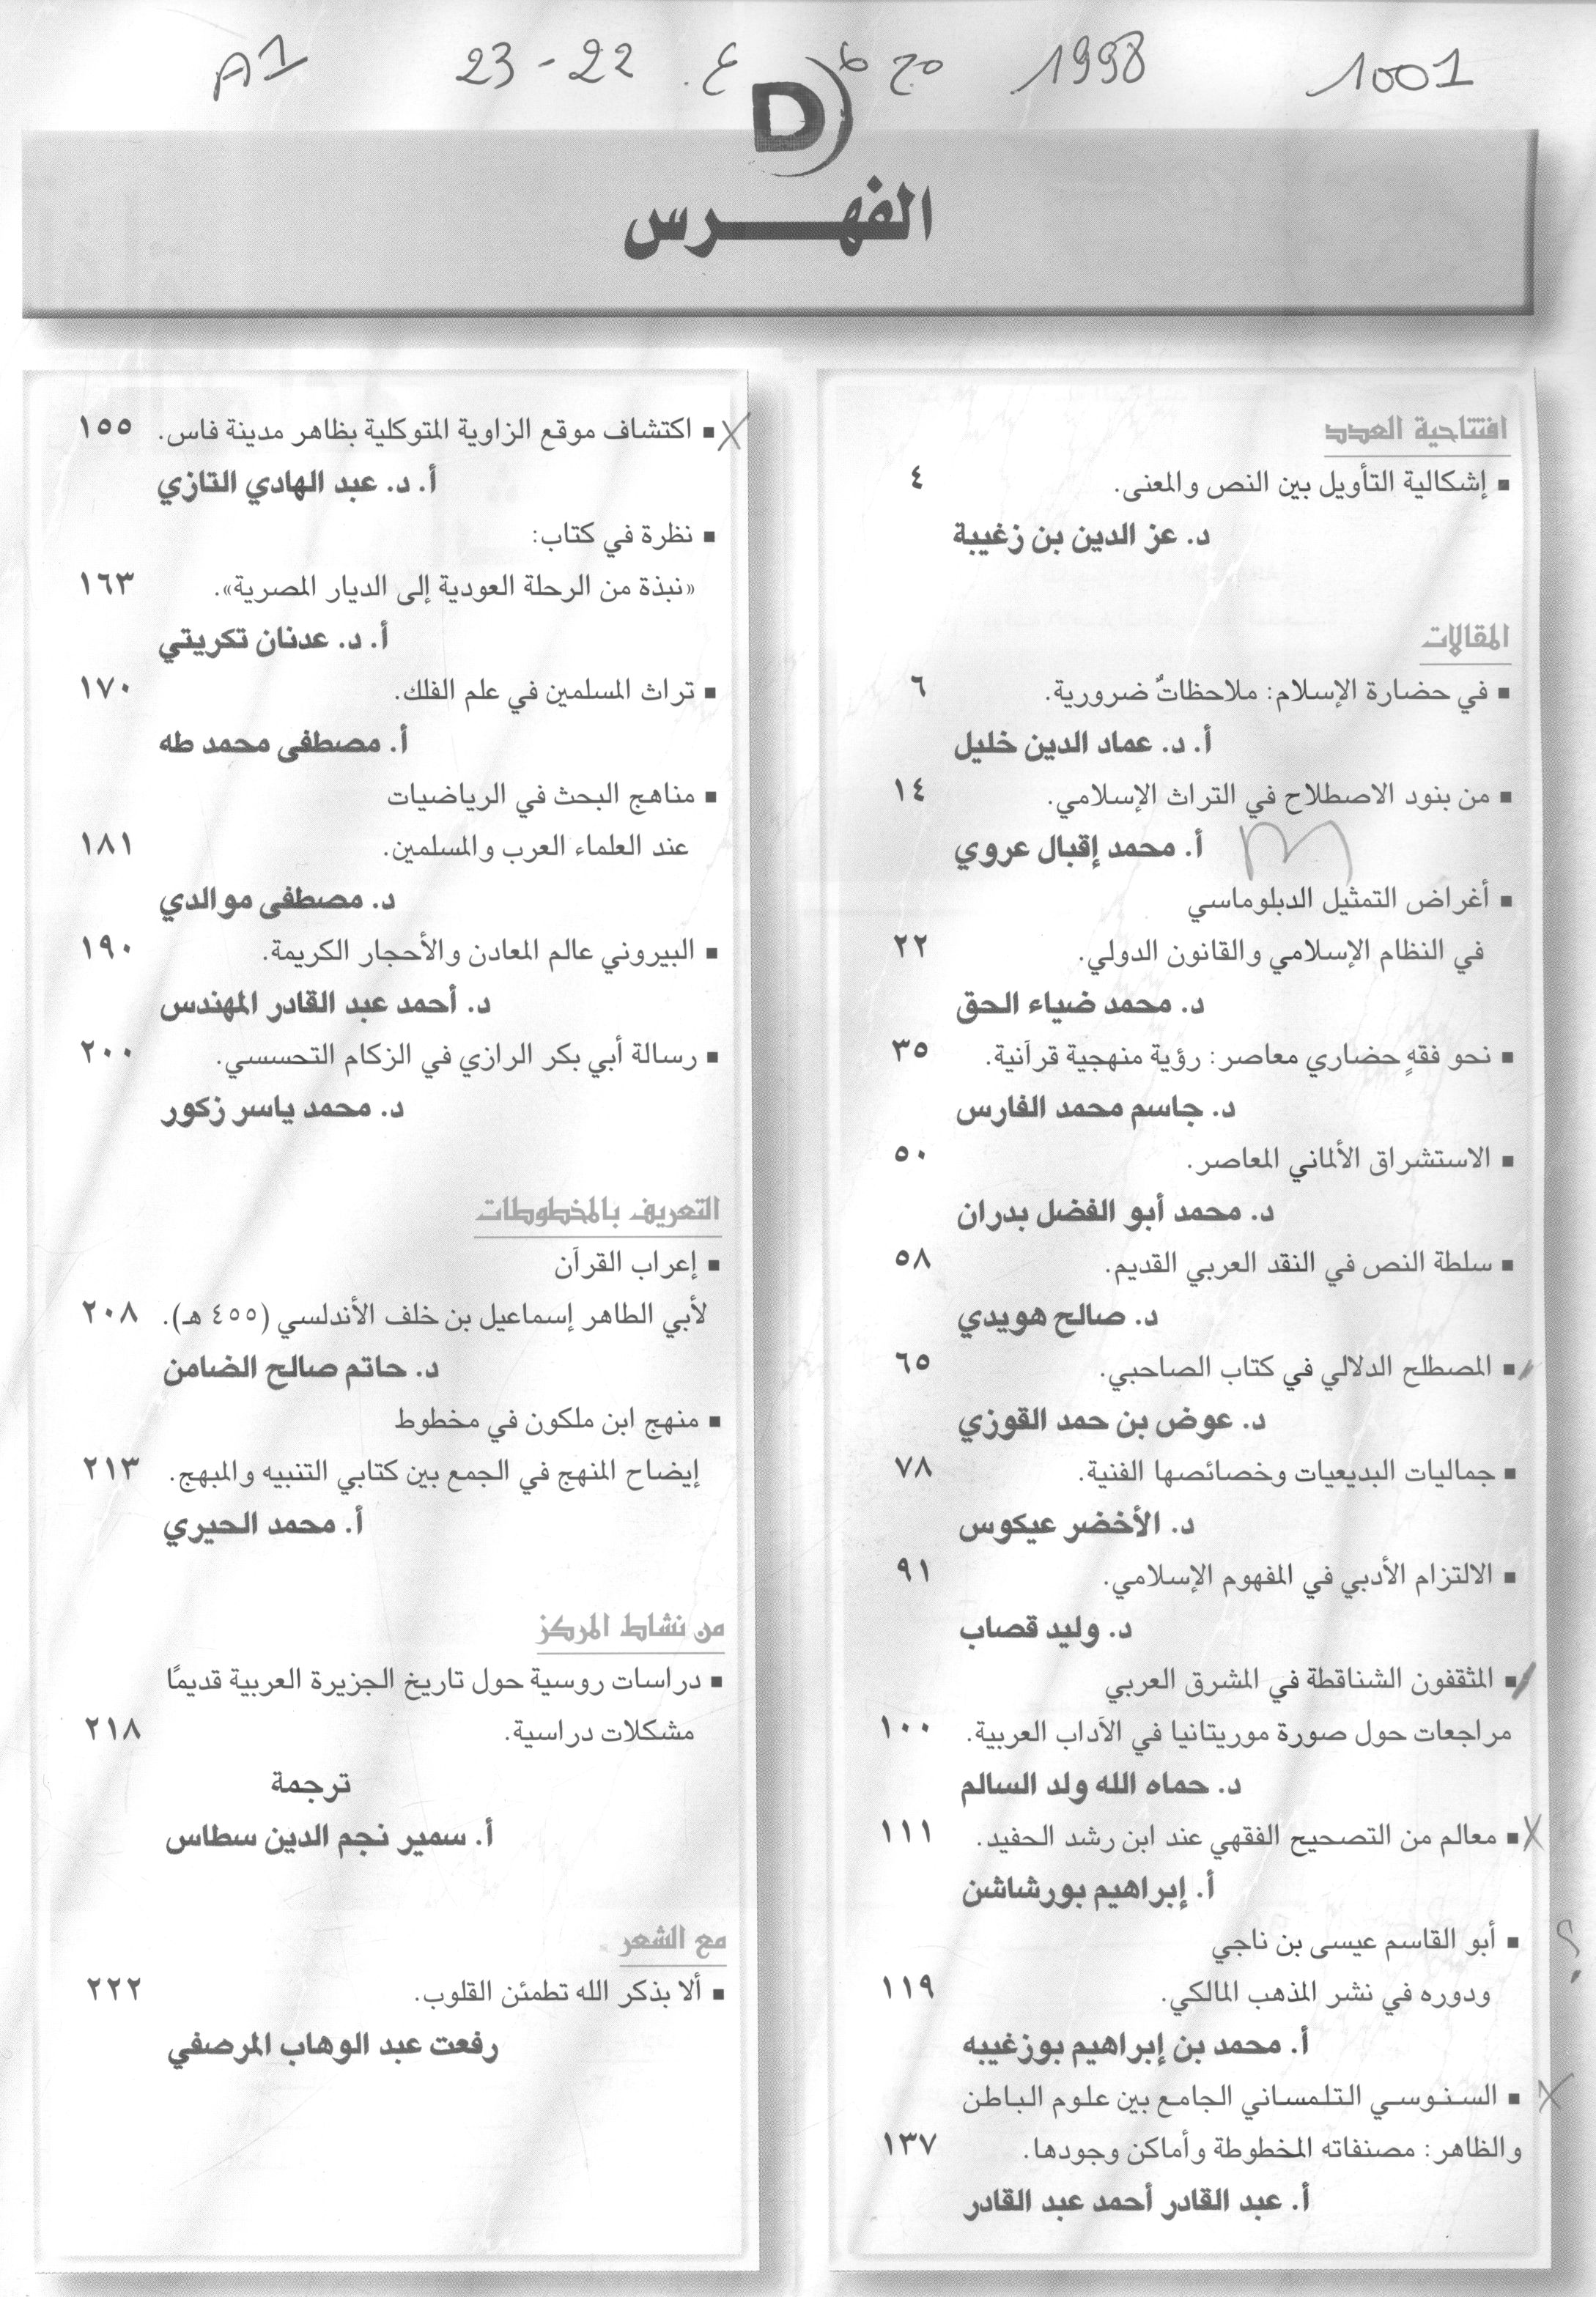 1001 1998 مج ع. 22 - 23 A1
D
الفهرس
افتتاحية العدد
▪ إشكالية التأويل بين النص والمعنى. ٤
د. عز الدين بن زغيبة
المقالات
▪ في حضارة الإسلام: ملاحظاتٌ ضرورية. ٦
أ. د. عماد الدين خليل
▪ من بنود الاصطلاح في التراث الإسلامي. ١٤
أ. محمد إقبال عروي
▪ أغراض التمثيل الدبلوماسي
في النظام الإسلامي والقانون الدولي. ٢٢
د. محمد ضياء الحق
▪ نحو فقهٍ حضاري معاصر: رؤية منهجية قرآنية. ٣٥
د. جاسم محمد الفارس
▪ الاستشراق الألماني المعاصر. ٥٠
د. محمد أبو الفضل بدران
▪ سلطة النص في النقد العربي القديم. ٥٨
د. صالح هويدي
▪ المصطلح الدلالي في كتاب الصاحبي. ٦٥
د. عوض بن حمد القوزي
▪ جماليات البديعيات وخصائصها الفنية. ٧٨
د. الأخضر عيكوس
▪ الالتزام الأدبي في المفهوم الإسلامي. ٩١
د. وليد قصاب
▪ المثقفون الشناقطة في المشرق العربي
مراجعات حول صورة موريتانيا في الآداب العربية. ١٠٠
د. حماه الله ولد السالم
▪ معالم من التصحيح الفقهي عند ابن رشد الحفيد. ١١١
أ. إبراهيم بورشاشن
▪ أبو القاسم عيسى بن ناجي
ودوره في نشر المذهب المالكي. ١١٩
أ. محمد بن إبراهيم بوزغيبه
▪ السنوسي التلمساني الجامع بين علوم الباطن
والظاهر: مصنفاته المخطوطة وأماكن وجودها. ١٣٧
أ. عبد القادر أحمد عبد القادر
▪ اكتشاف موقع الزاوية المتوكلية بظاهر مدينة فاس. ١٥٥
أ. د. عبد الهادي التازي
▪ نظرة في كتاب:
«نبذة من الرحلة العودية إلى الديار المصرية». ١٦٣
أ. د. عدنان تكريتي
▪ تراث المسلمين في علم الفلك. ١٧٠
أ. مصطفى محمد طه
▪ مناهج البحث في الرياضيات
عند العلماء العرب والمسلمين. ١٨١
د. مصطفى موالدي
▪ البيروني عالم المعادن والأحجار الكريمة. ١٩٠
د. أحمد عبد القادر المهندس
▪ رسالة أبي بكر الرازي في الزكام التحسسي. ٢٠٠
د. محمد ياسر زكور
التعريف بالمخطوطات
▪ إعراب القرآن
لأبي الطاهر إسماعيل بن خلف الأندلسي (٤٥٥ هـ). ٢٠٨
د. حاتم صالح الضامن
▪ منهج ابن ملكون في مخطوط
إيضاح المنهج في الجمع بين كتابي التنبيه والمبهج. ٢١٣
أ. محمد الحيري
من نشاط المركز
▪ دراسات روسية حول تاريخ الجزيرة العربية قديمًا
مشكلات دراسية. ٢١٨
ترجمة
أ. سمير نجم الدين سطاس
مع الشعر
▪ ألا بذكر الله تطمئن القلوب. ٢٢٢
رفعت عبد الوهاب المرصفي